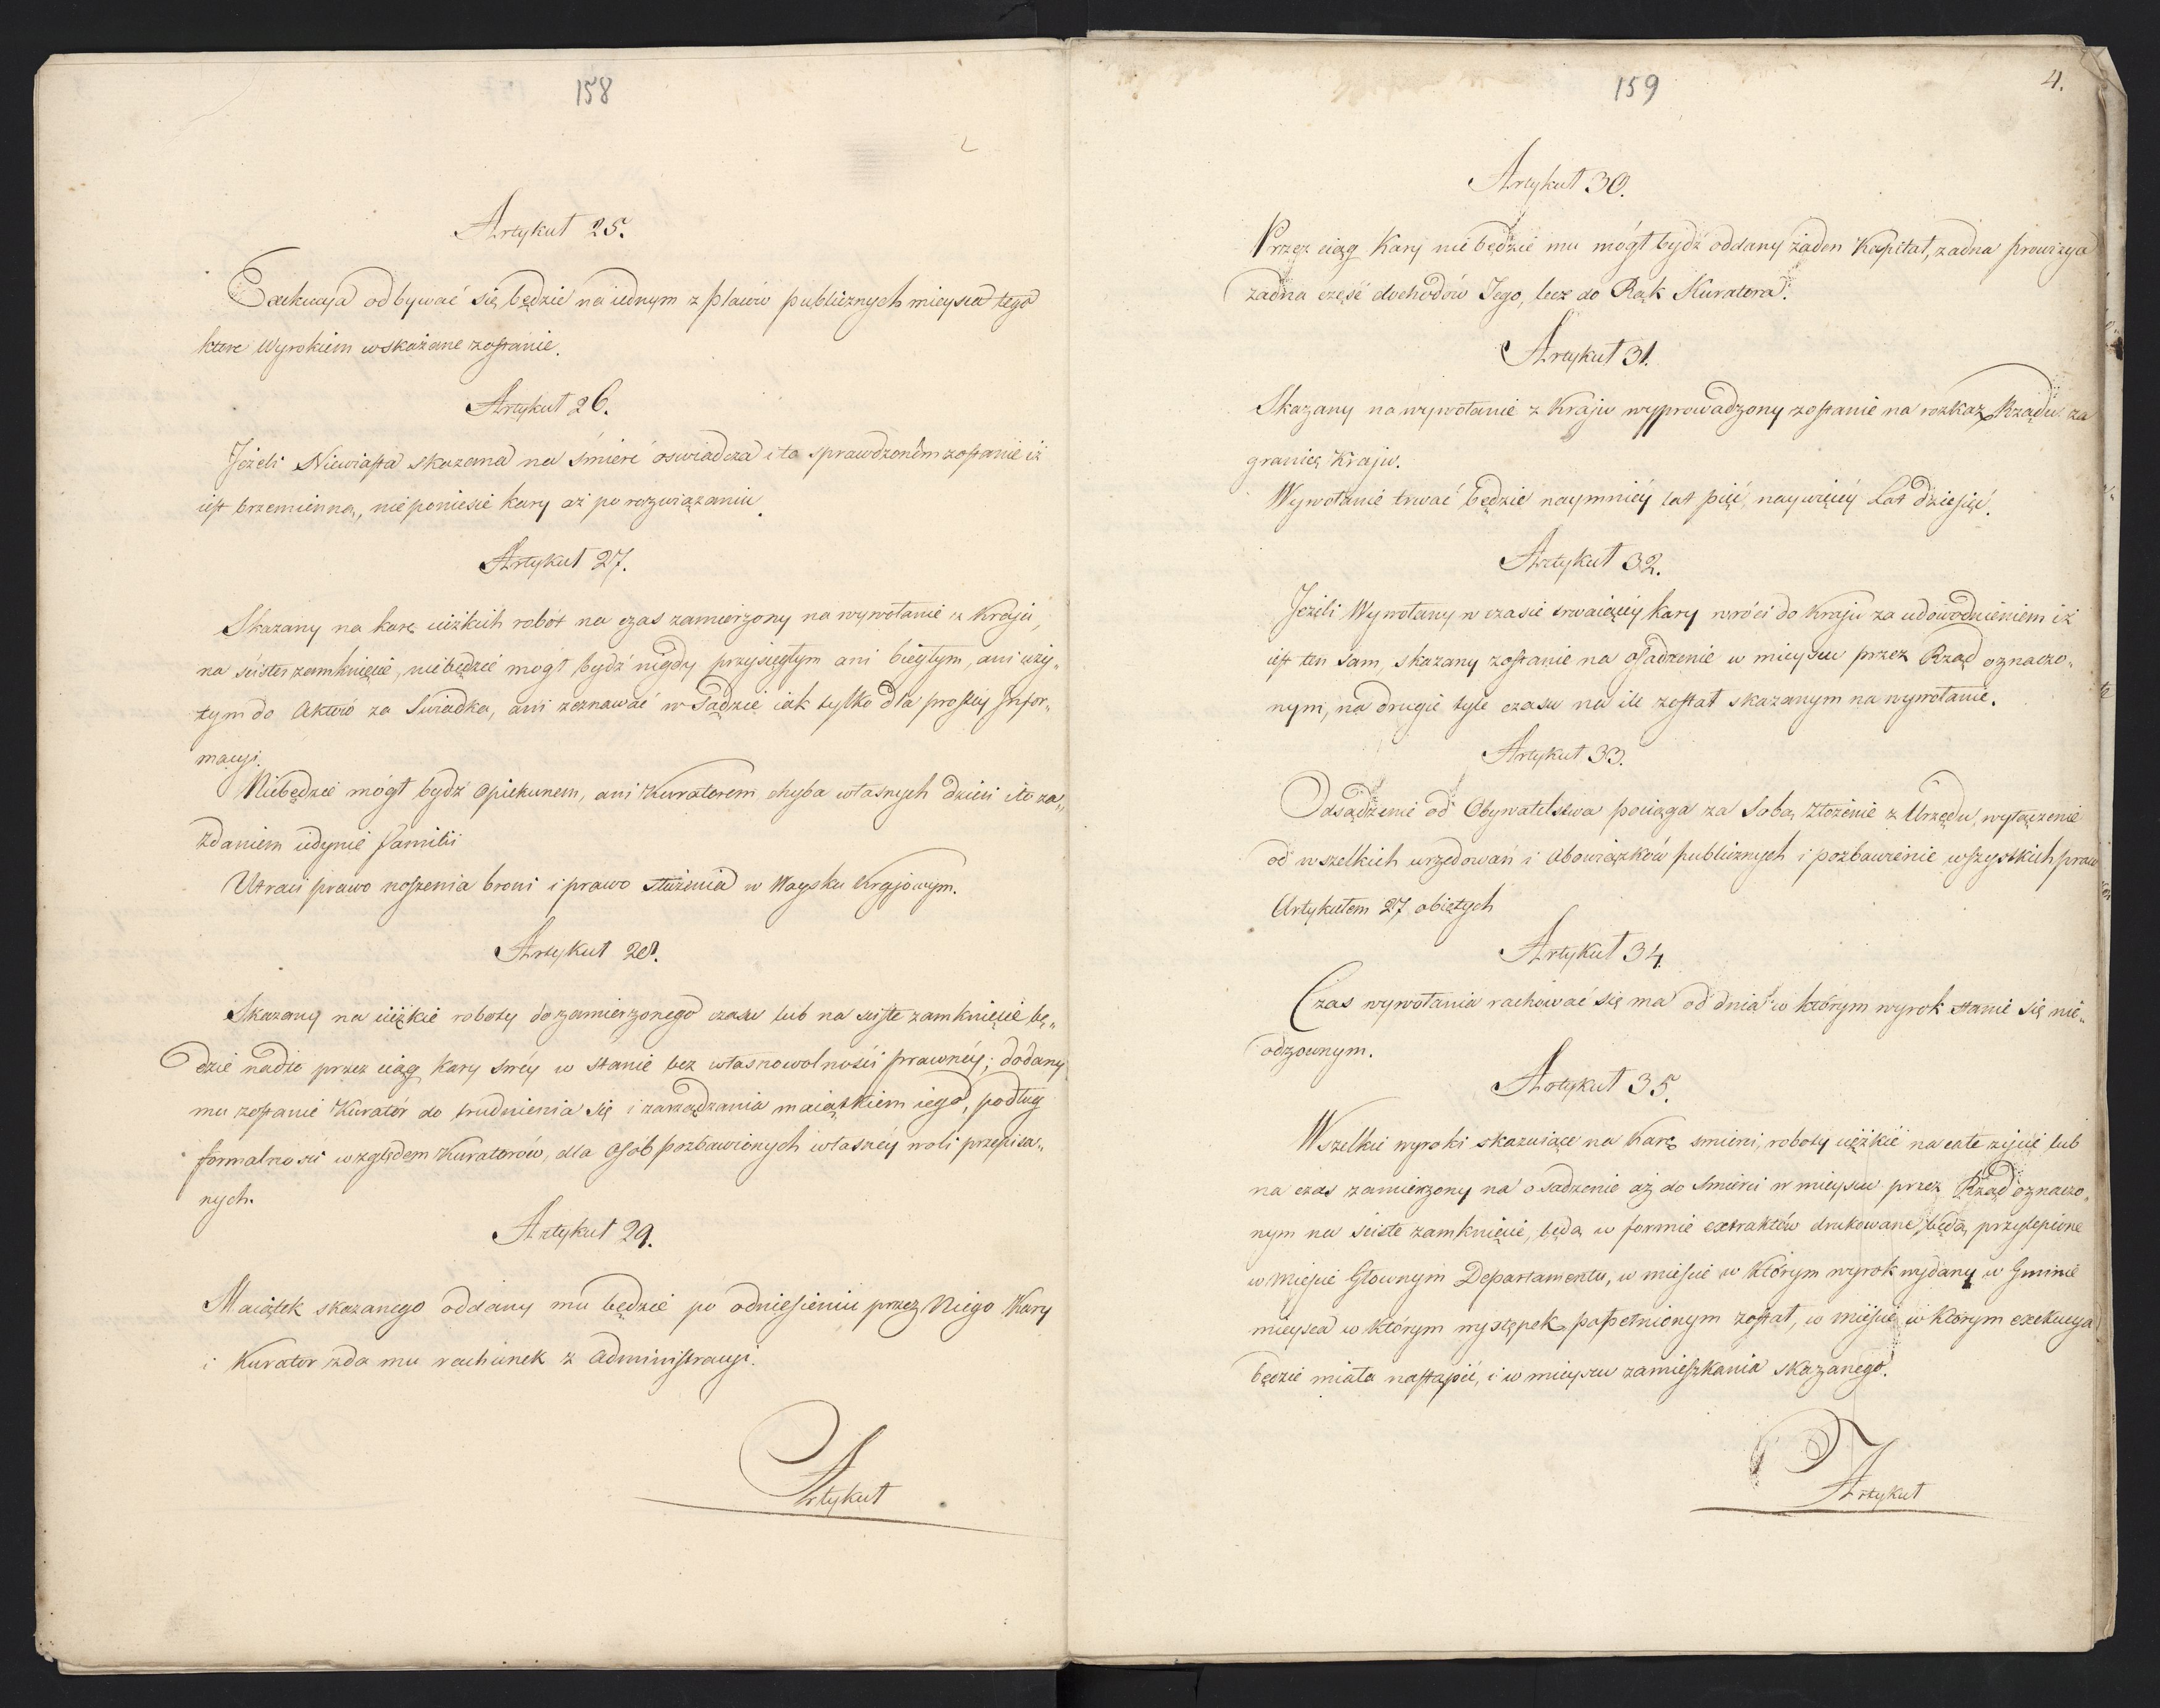 158
Artykuł 25.
Exekucya odbywać się będzie na iednym z placów publicznych mieysca tego
które Wyrokiem wskazane zostanie.
Artykuł 26.
Jeżeli Niewiasta skazana na śmierć oswiadcza i to sprawdzoném zostanie iż
iest brzemienną, nie poniesie kary aż po rozwiązaniu.
Artykuł 27.
Skazany na karę ciężkich robót na czas zamierzony na wywołanie z Kraju,
na ścisłe zamknięcie, niebędzie mógł bydź nigdy przysięgłym ani biegłym, ani uży„
tym do Aktów za Swiadka, ani zeznawać w Sądzie iak tylko dla prostey Infor„
macyi.
Niebędzie mógł bydź Opiekunem, ani Kuratorem chyba własnych dzieci i to za„
zdaniem iedynie familii
Utraci prawo noszenia broni i prawo służenia w Woysku Krajowym.
Artykuł 28.
Skazany na ciężkie roboty do zamierzonego czasu lub na ścisłe zamknięcie bę„
dzie nadto przez ciąg kary swéy w stanie bez własnowolności prawnéy; dodany
mu zostanie Kurator do trudnienia się i zarządzania maiątkiem iego, podług
formalności względem Kuratorów, dla Osób pozbawionych własnéy woli przepisa„
nych.
Artykuł 29.
Maiątek skazanego oddany mu będzie po odniesieniu przez Niego Kary
i Kurator zda mu rachunek z Administracyi.
Artykuł
159
4.
Artykuł 30.
Przez ciąg Kary nie będzie mu mógł bydź oddany żaden Kapitał, żadna prowizya
żadna część dochodów Jego, lecz do Rąk Kuratora.
Artykuł 31.
Skazany na wywołanie z Kraju wyprowadzony zostanie na rozkaz Rządu za
granicę Kraju.
Wywołanie trwać będzie naymniéy lat pięć, naywięcéy Lat dziesięć.
Artykuł 32.
Jeżeli Wywołany w czasie trwaiącéy kary wróci do Kraju za udowodnieniem iż
iest ten sam, skazany zostanie na osadzenie w mieyscu przez Rząd oznaczo„
nym, na drugie tyle czasu na ile został skazanym na wywołanie.
Artykuł 33.
Odsądzenie od Obywatelstwa pociąga za Sobą złożenie z Urzędu, wyłączenie
od wszelkich urzędowań i Obowiązków publicznych i pozbawienie wszystkich praw
Artykułem 27 obiętych
Artykuł 34.
Czas wywołania rachować się ma od dnia w którym wyrok stanie się nie„
odzownym.
Artykuł 35.
Wszelkie wyroki skazuiące na Karę smierci, roboty ciężkie na całe życie lub
na czas zamierzony na osadzenie aż do Smierci w mieyscu przez Rząd oznaczo„
nym na ścisłe zamknięcie, będą w formie extraktów drukowane, będą przylepione
w Mieście Głownym Departamentu, w mieście w którym wyrok wydany w Gminie
mieysca w którym występek popełnionym został, w mieście w którym exekucya
będzie miała nastąpić, i w mieyscu zamieszkania skazanego.
Artykuł